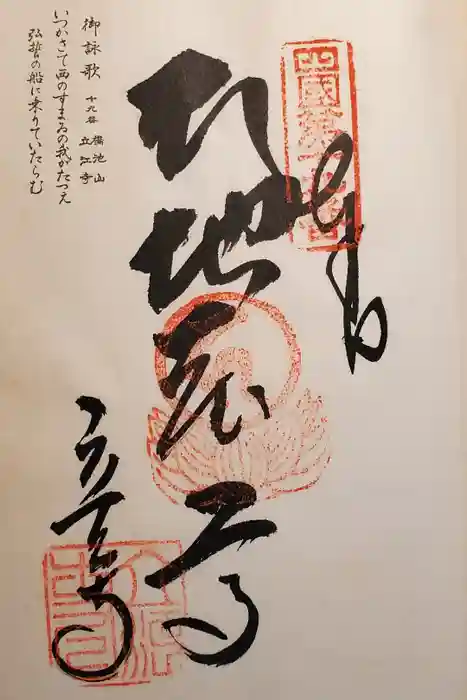 四國第十九番
奉納
地蔵尊
立江寺
御詠歌 十九番 橋池山 立江寺
いつかさて西のすまゐの我がたつえ
弘誓の船に乗りていたらむ